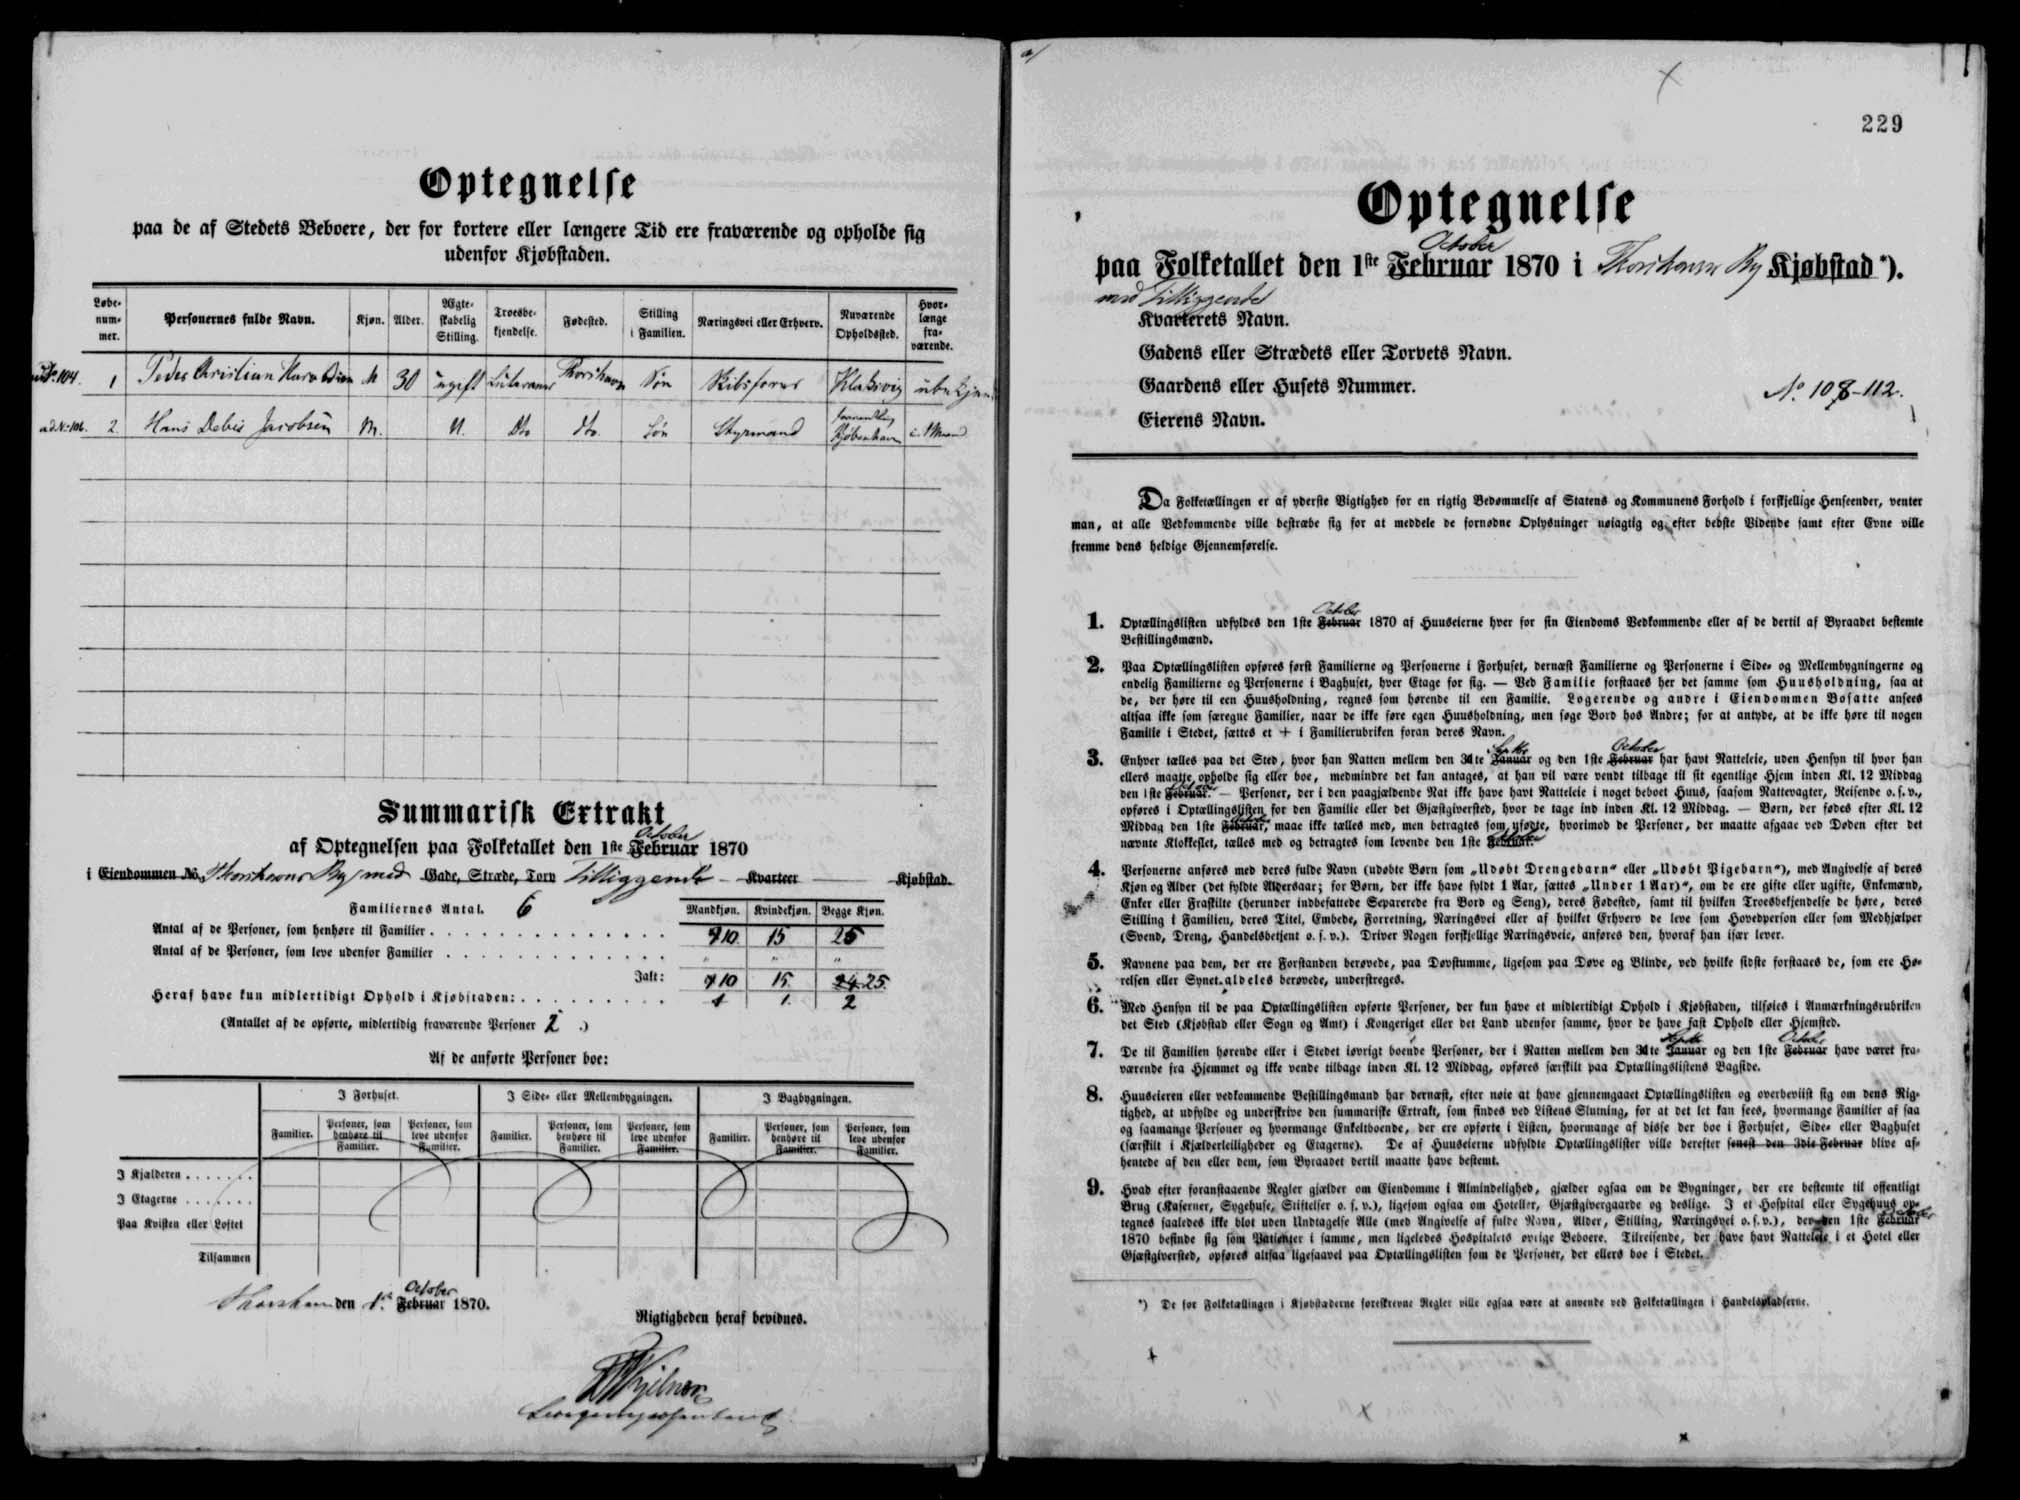 Optegnelse
paa de af Stedets Beboere, der for kortere eller længere Tid ere fraværende og opholde sig
udenfor Kjøbstaden.
Løbe-
num-
mer.
Personernes fulde Navn.
Kjøn.
Alder.
Ægte-
skabelig
Stilling.
Troesbe-
kjendelse.
Fødested.
Stilling
i Familien.
Næringsvei eller Erhverv.
Nuværende
Opholdssted.
Hvor-
længe
fra-
værende.
No. 104. 1 Peder Christian M 30 ugift Lutheraner Thorshavn Søn Skibsfører Klaksvig
ad No. 106. 2. Hans Debes Jacobsen M. U. Dto dto. Søn Styrmand Kjøbenhavn
Summarisk Extrakt
October
af Optegnelsen paa Folketallet den 1ste Februar 1870
i Eiendommen No. Thorshavns By med Gade, Stræde, Torv Tilliggende Kvarteer Kjøbstad.
Familiernes Antal. 6
Mandkjøn. Kvindekjøn. Begge Kjøn.
Antal af de Personer, som henhøre til Familier 10. 15 25
Antal af de Personer, som leve udenfor Familier " " "
Ialt: 10 15. 24 25.
Heraf have kun midlertidigt Ophold i Kjøbstaden: 1 1. 2
(Antallet af de opførte, midlertidig fraværende Personer 2 .)
Af de anførte Personer boe:
I Forhuset. I Side- eller Mellembygningen. I Bagbygningen.
Familier. Personer, som henhøre til Familier. Personer, som leve udenfor Familier. Familier. Personer, som henhøre til Familier. Personer, som leve udenfor Familier. Familier. Personer, som henhøre til Familier. Personer, som leve udenfor Familier.
I Kjælderen
I Etagerne
Paa Kvisten eller Loftet
Tilsammen
October
Thorshavn den 1ste Februar 1870.
Rigtigheden heraf bevidnes.
229
Optegnelse
October
paa Folketallet den 1ste Februar 1870 i Thorshavns By Kjøbstad*).
med Tilliggende
Kvarterets Navn.
Gadens eller Strædets eller Torvets Navn.
Gaardens eller Husets Nummer. No. 108-112.
Eierens Navn.
Da Folketællingen er af yderste Vigtighed for en rigtig Bedømmelse af Statens og Kommunens Forhold i forskjellige Henseender, venter
man, at alle Vedkommende ville bestræbe sig for at meddele de fornødne Oplysninger nøiagtig og efter bedste Vidende samt efter Evne ville
fremme dens heldige Gjennemførelse.
October
1. Optællingslisten udfyldes den 1ste Februar 1870 af Huuseierne hver for sin Eiendoms Vedkommende eller af de dertil af Byraadet bestemte
Bestillingsmænd.
2. Paa Optællingslisten opføres først Familierne og Personerne i Forhuset, dernæst Familierne og Personerne i Side- og Mellembygningerne og
endelig Familierne og Personerne i Baghuset, hver Etage for sig. — Ved Familie forstaaes her det samme som Huusholdning, saa at
de, der høre til een Huusholdning, regnes som hørende til een Familie. Logerende og andre i Eiendommen Bosatte ansees
altsaa ikke som særegne Familier, naar de ikke føre egen Huusholdning, men søge Bord hos Andre; for at antyde, at de ikke høre til nogen
Familie i Stedet, sættes et + i Familierubriken foran deres Navn.
Septbr. October
3. Enhver tælles paa det Sted, hvor han Natten mellem den 31te Januar og den 1ste Februar har havt Natteleie, uden Hensyn til hvor han
ellers maatte opholde sig eller boe, medmindre det kan antages, at han vil være vendt tilbage til sit egentlige Hjem inden Kl. 12 Middag
den 1ste Februar. — Personer, der i den paagjældende Nat ikke have havt Natteleie i noget beboet Huus, saasom Nattevagter, Reisende o. s. v.,
opføres i Optællingslisten for den Familie eller det Gjæstgiversted, hvor de tage ind inden Kl. 12 Middag. — Børn, der fødes efter Kl. 12
Middag den 1ste Februar, maae ikke tælles med, men betragtes som ufødte, hvorimod de Personer, der maatte afgaae ved Døden efter det
nævnte Klokkeslet, tælles med og betragtes som levende den 1ste Februar.
4. Personerne anføres med deres fulde Navn (udøbte Børn som „Udøbt Drengebarn“ eller „Udøbt Pigebarn“), med Angivelse af deres
Kjøn og Alder (det fyldte Aldersaar; for Børn, der ikke have fyldt 1 Aar, sættes „Under 1 Aar)“, om de ere gifte eller ugifte, Enkemænd,
Enker eller Fraskilte (herunder indbefattede Separerede fra Bord og Seng), deres Fødested, samt til hvilken Troesbekjendelse de høre, deres
Stilling i Familien, deres Titel, Embede, Forretning, Næringsvei eller af hvilket Erhverv de leve som Hovedperson eller som Medhjælper
(Svend, Dreng, Handelsbetjent o. s. v.). Driver Nogen forskjellige Næringsveie, anføres den, hvoraf han især lever.
5. Navnene paa dem, der ere Forstanden berøvede, paa Døvstumme, ligesom paa Døve og Blinde, ved hvilke sidste forstaaes de, som ere Hø-
relsen eller Synet aldeles berøvede, understreges.
6. Med Hensyn til de paa Optællingslisten opførte Personer, der kun have et midlertidigt Ophold i Kjøbstaden, tilføies i Anmærkningsrubriken
det Sted (Kjøbstad eller Sogn og Amt) i Kongeriget eller det Land udenfor samme, hvor de have fast Ophold eller Hjemsted.
Septbr October
7. De til Familien hørende eller i Stedet iøvrigt boende Personer, der i Natten mellem den 31te Januar og den 1ste Februar have været fra-
værende fra Hjemmet og ikke vende tilbage inden Kl. 12 Middag, opføres særskilt paa Optællingslistens Bagside.
8. Huuseieren eller vedkommende Bestillingsmand har dernæst, efter nøie at have gjennemgaaet Optællingslisten og overbeviist sig om dens Rig-
tighed, at udfylde og underskrive den summariske Extrakt, som findes ved Listens Slutning, for at det let kan sees, hvormange Familier af saa
og saamange Personer og hvormange Enkeltboende, der ere opførte i Listen, hvormange af disse der boe i Forhuset, Side- eller Baghuset
(særskilt i Kjælderleiligheder og Etagerne). De af Huuseierne udfyldte Optællingslister ville derefter senest den 3die Februar blive af-
hentede af den eller dem, som Byraadet dertil maatte have bestemt.
9. Hvad efter foranstaaende Regler gjælder om Eiendomme i Almindelighed, gjælder ogsaa om de Bygninger, der ere bestemte til offentligt
Brug (Kaserner, Sygehuse, Stiftelser o. s. v.), ligesom ogsaa om Hoteller, Gjæstgivergaarde og deslige. I et Hospital eller Sygehuus op-
tegnes saaledes ikke blot uden Undtagelse Alle (med Angivelse af fulde Navn, Alder, Stilling, Næringsvei o. s. v.), der den 1ste Februar
1870 befinde sig som Patienter i samme, men ligeledes Hospitalets øvrige Beboere. Tilreisende, der have havt Natteleie i et Hotel eller
Gjæstgiversted, opføres altsaa ligesaavel paa Optællingslisten som de Personer, der ellers boe i Stedet.
*) De for Folketællingen i Kjøbstæderne foreskrevne Regler ville ogsaa være at anvende ved Folketællingen i Handelspladserne.